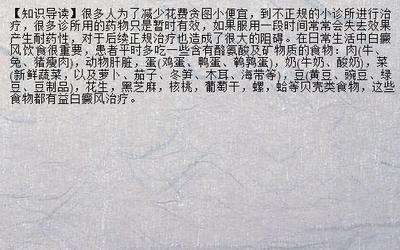 【知识导读】很多人为了减少花费贪图小便宜，到不正规的小诊所进行治
疗，很多诊所用的药物只是暂时有效，如果服用一段时间常常会失去效果
产生耐药性，对于后续正规治疗也造成了很大的阻碍。在日常生活中白癜
风饮食很重要，患者平时多吃一些含有酪氨酸及矿物质的食物：肉(牛、
兔、猪瘦肉)，动物肝脏，蛋(鸡蛋、鸭蛋、鹌鹑蛋)，奶(牛奶、酸奶)，菜
(新鲜蔬菜，以及萝卜、茄子、冬笋、木耳、海带等)，豆(黄豆、豌豆、绿
豆、豆制品)，花生，黑芝麻，核桃，葡萄干，螺，蛤等贝壳类食物，这些
食物都有益白癜风治疗。